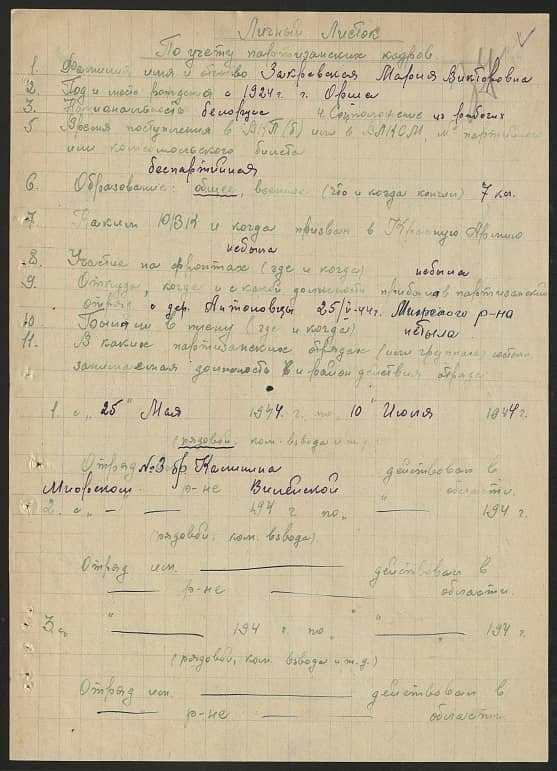 Личный Листок
По учету партизанских кадров
1. Фамилия, имя и отчество Закревская Мария Викторовна
2. Год и место рождения с 1924 г. г. Орша
3. Национальность белорус 4. Соцположение из рабочих
5. Время поступления в ВКП(б) или в ВЛКСМ, № партийного
или комсомольского билета
беспартийная
6. Образование: общее, военное (что и когда кончил) 7 кл.
7. Каким РВК и когда призван в Красную Армию
небыла
8. Участие на фронтах (где и когда) небыла
9. Откуда, когда и с какой должности прибыл в партизанский
отряд с дер. Антоновцы 25/V-44г. Миорского р-на
10. в плену (где и когда) небыла
11. В каких партизанских отрядах (или группах) состоял,
занимаемая должность и район действия отряда
1. с „ 25 " Мая 1944 г. по „ 10 " Июля 1944 г.
(рядовой, ком. взвода и т.д.)
Отряд №3 бр Калинина действовал в
Миорском р-не Вилейской области.
2. с „ — — 194 г. по „ — 194 г.
(рядовой, ком. взвода)
Отряд им. — действовал в
— р-не — области.
3. с „ — 194 г. по „ — 194 г.
(рядовой, ком. взвода и т.д.)
Отряд им. — действовал в
— р-не — — области.